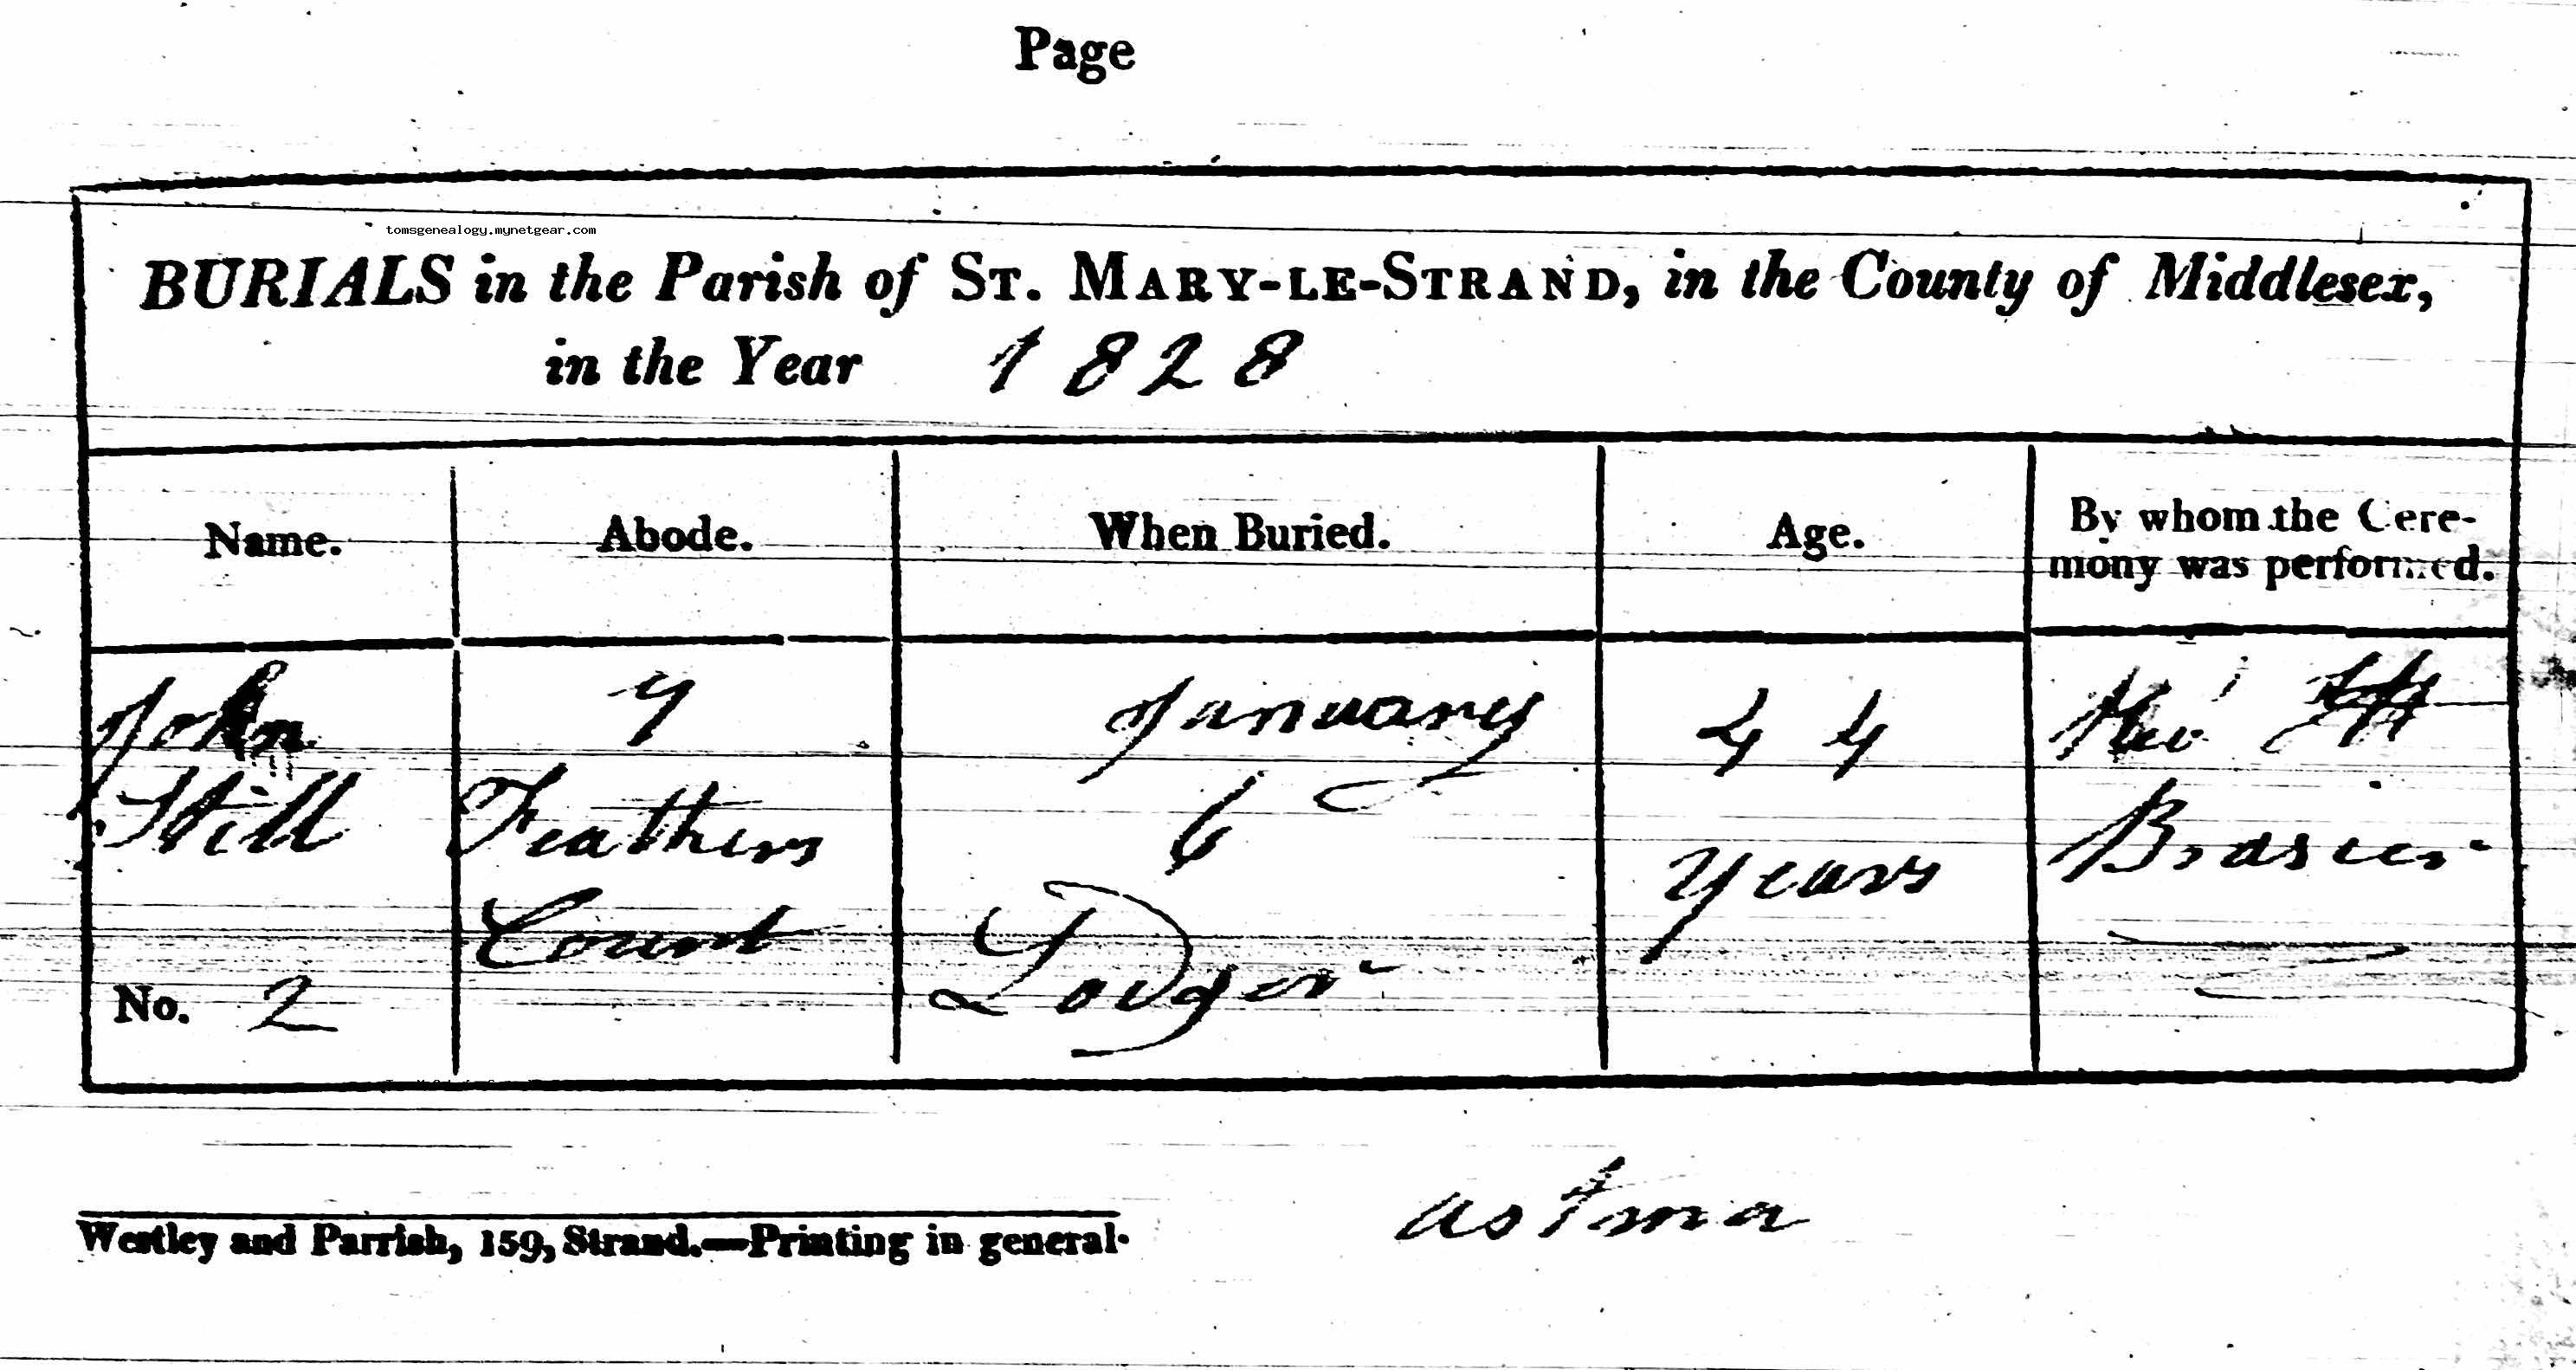 Page
tomsgenealogy.mynetgear.com
BURIALS in the Parish of ST. MARY-LE-STRAND, in the County of Middlesex,
in the Year 1828
Name. Abode. When Buried. Age. By whom the Cere-
mony was performed.
John 7 January 44 Rev
Still Feathers 6 Years Brasier
Court Lodger
No. 2
astma
Westley and Parrish, 159, Strand.—Printing in general.